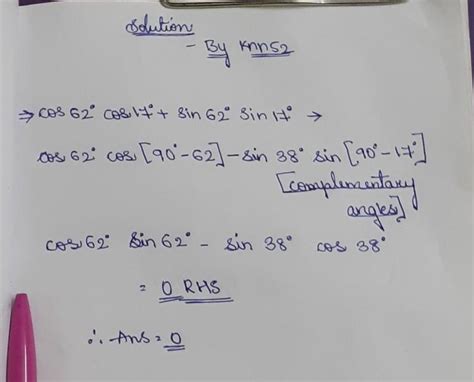 Solution
- By Knn52
⇒ cos 62° cos 17° + sin 62° sin 17° →
cos 62° cos [90° - 62] - sin 38° sin [90° - 17°]
[complementary
angles]
cos 62° sin 62° - sin 38° cos 38°
= 0 RHS
∴ Ans = 0